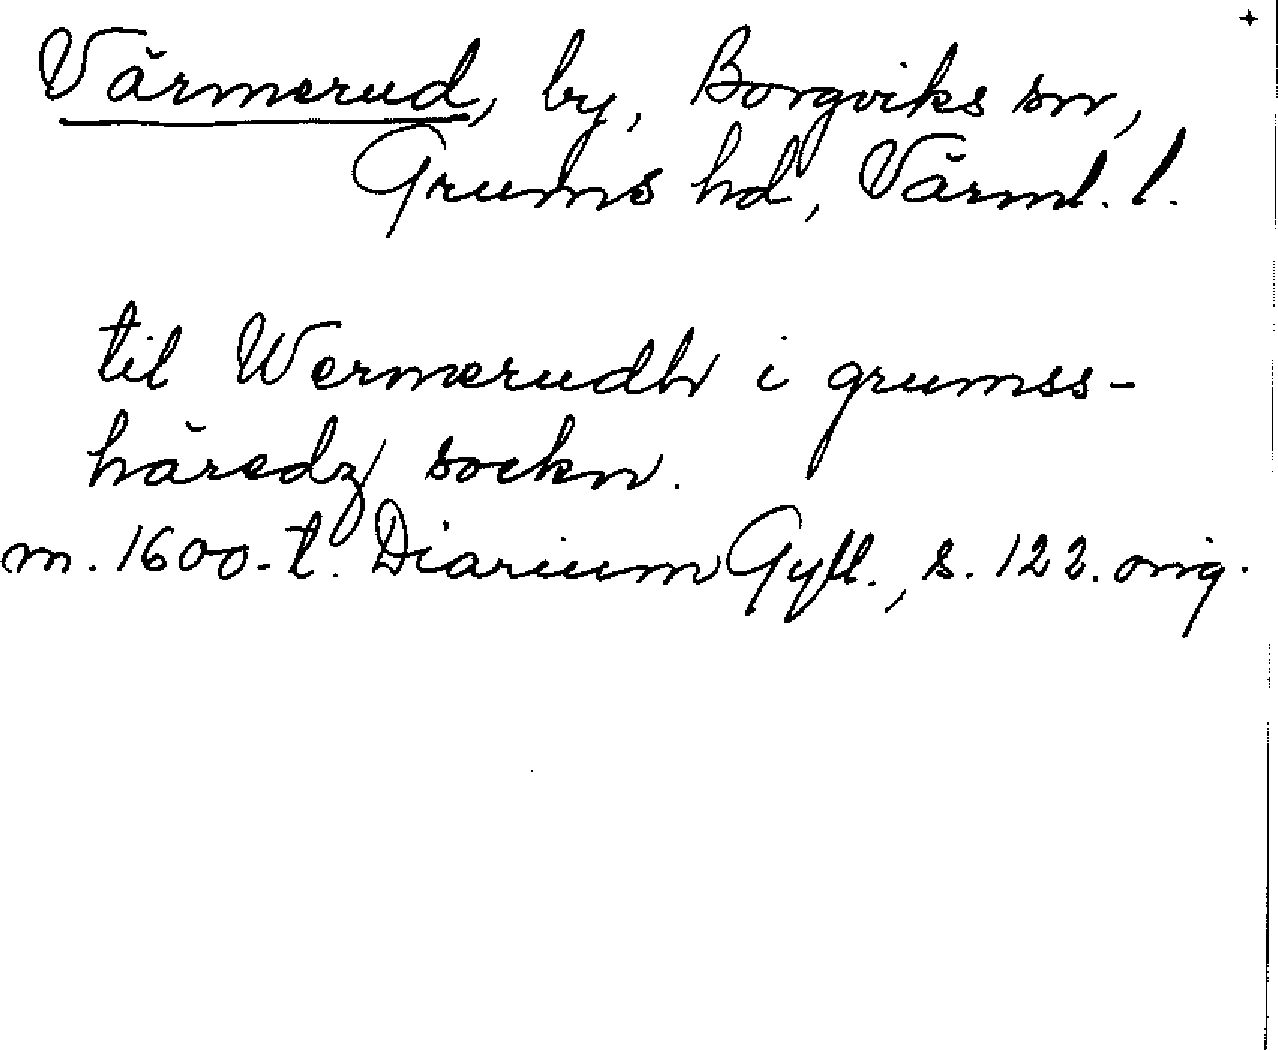 +
Värmerud, by, Borgviks sn,
Grums hd, Värml. l.
til Wermerudh i grumss-
häredz sockn.
m. 1600-t. Diarium Gyll., s. 122. orig.